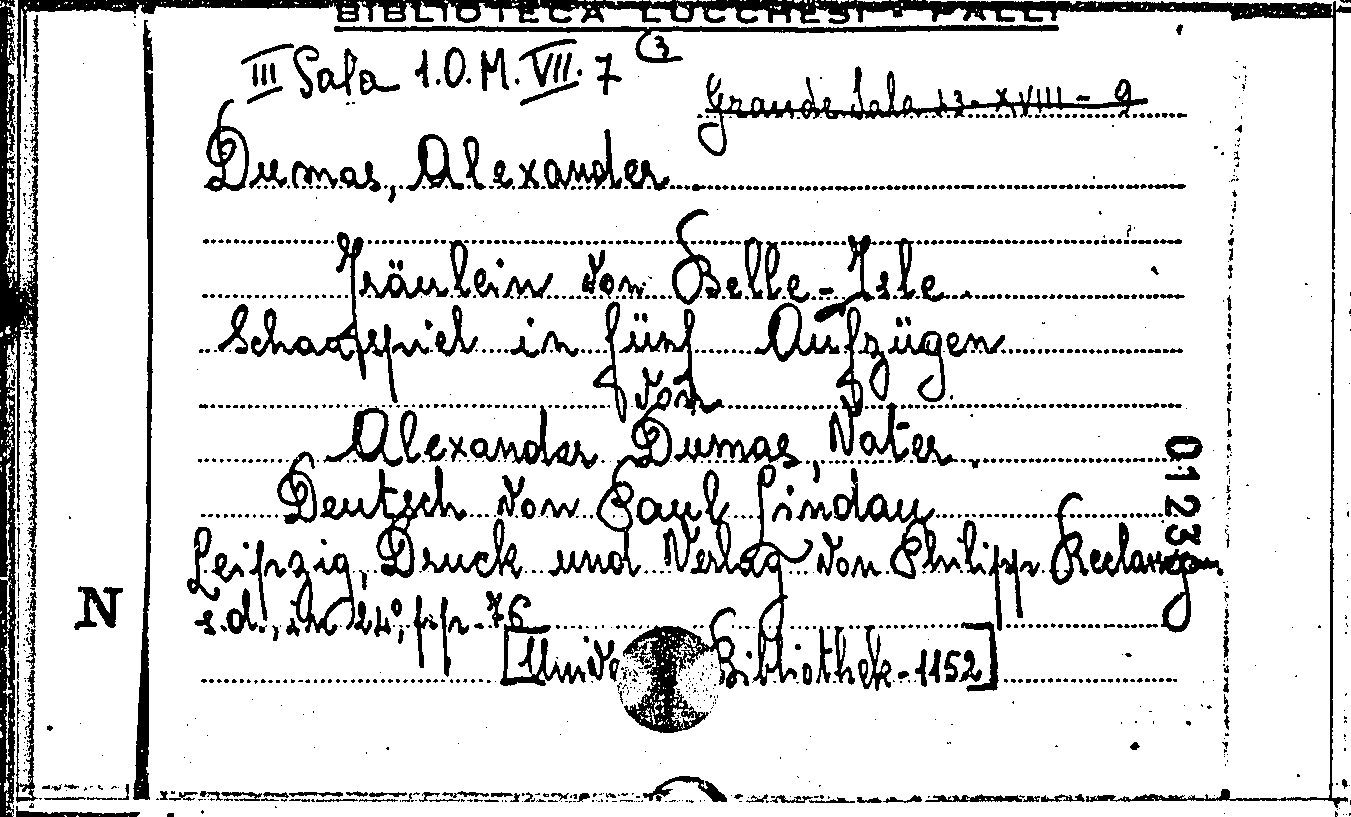 BIBLIOTECA LUCCHESI - PALLI
III Sala 1.O.M.VII.7 (3
Grande Sala 23-XVIII-9
Dumas, Alexander
Fräulein von Belle-Isle.
Schauspiel in fünf Aufzügen
von
Alexander Dumas, Vater.
Deutsch von Paul Lindau
Leipzig, Druck und Verlag von Philipp Reclam
s.d., in 24°, pp. 76
[Unive Bibliothek-1152]
N
0123